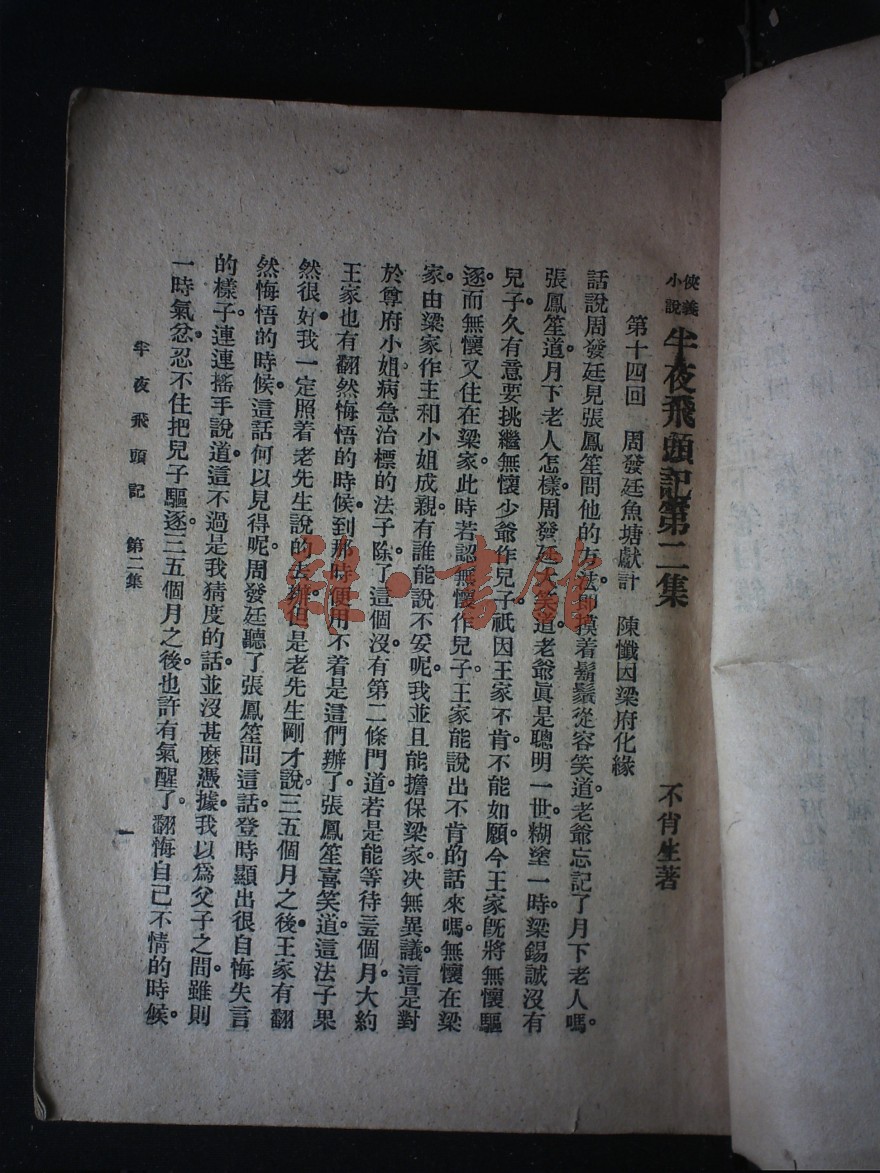 俠義小說 半夜飛頭記第二集
不肖生著
第十四回 周發廷魚塘獻計 陳懺因梁府化緣
話說周發廷見張鳳笙問他的方法卽摸着鬍鬚從容笑道。老爺忘記了月下老人嗎。
張鳳笙道月下老人怎樣周發廷大笑道老爺眞是聰明一世。糊塗一時。梁錫誠沒有
兒子久有意要挑繼無懷少爺作兒子。祇因王家不肯。不能如願。今王家旣將無懷驅
逐。而無懷又住在梁家。此時若認無懷作兒子。王家能說出不肯的話來嗎。無懷在梁
家。由梁家作主和小姐成親。有誰能說不妥呢。我並且能擔保梁家。决無異議。這是對
於尊府小姐病急治標的法子。除了這個。沒有第二條門道。若是能等待三五個月。大約
王家也有翻然悔悟的時候。到那時便用不着是這們辦了。張鳳笙喜笑道。這法子果
然很好。我一定照着老先生說的去辦。但是老先生剛才說。三五個月之後。王家有翻
然悔悟的時候。這話何以見得呢。周發廷聽了張鳳笙問這話。登時顯出很自悔失言
的樣子。連連搖手說道。這不過是我猜度的話。並沒甚麽憑據。我以爲父子之間。雖則
一時氣忿。忍不住把兒子驅逐。三五個月之後。也許有氣醒了。翻悔自己不情的時候。
半夜飛頭記 第二集
一
雜·書館